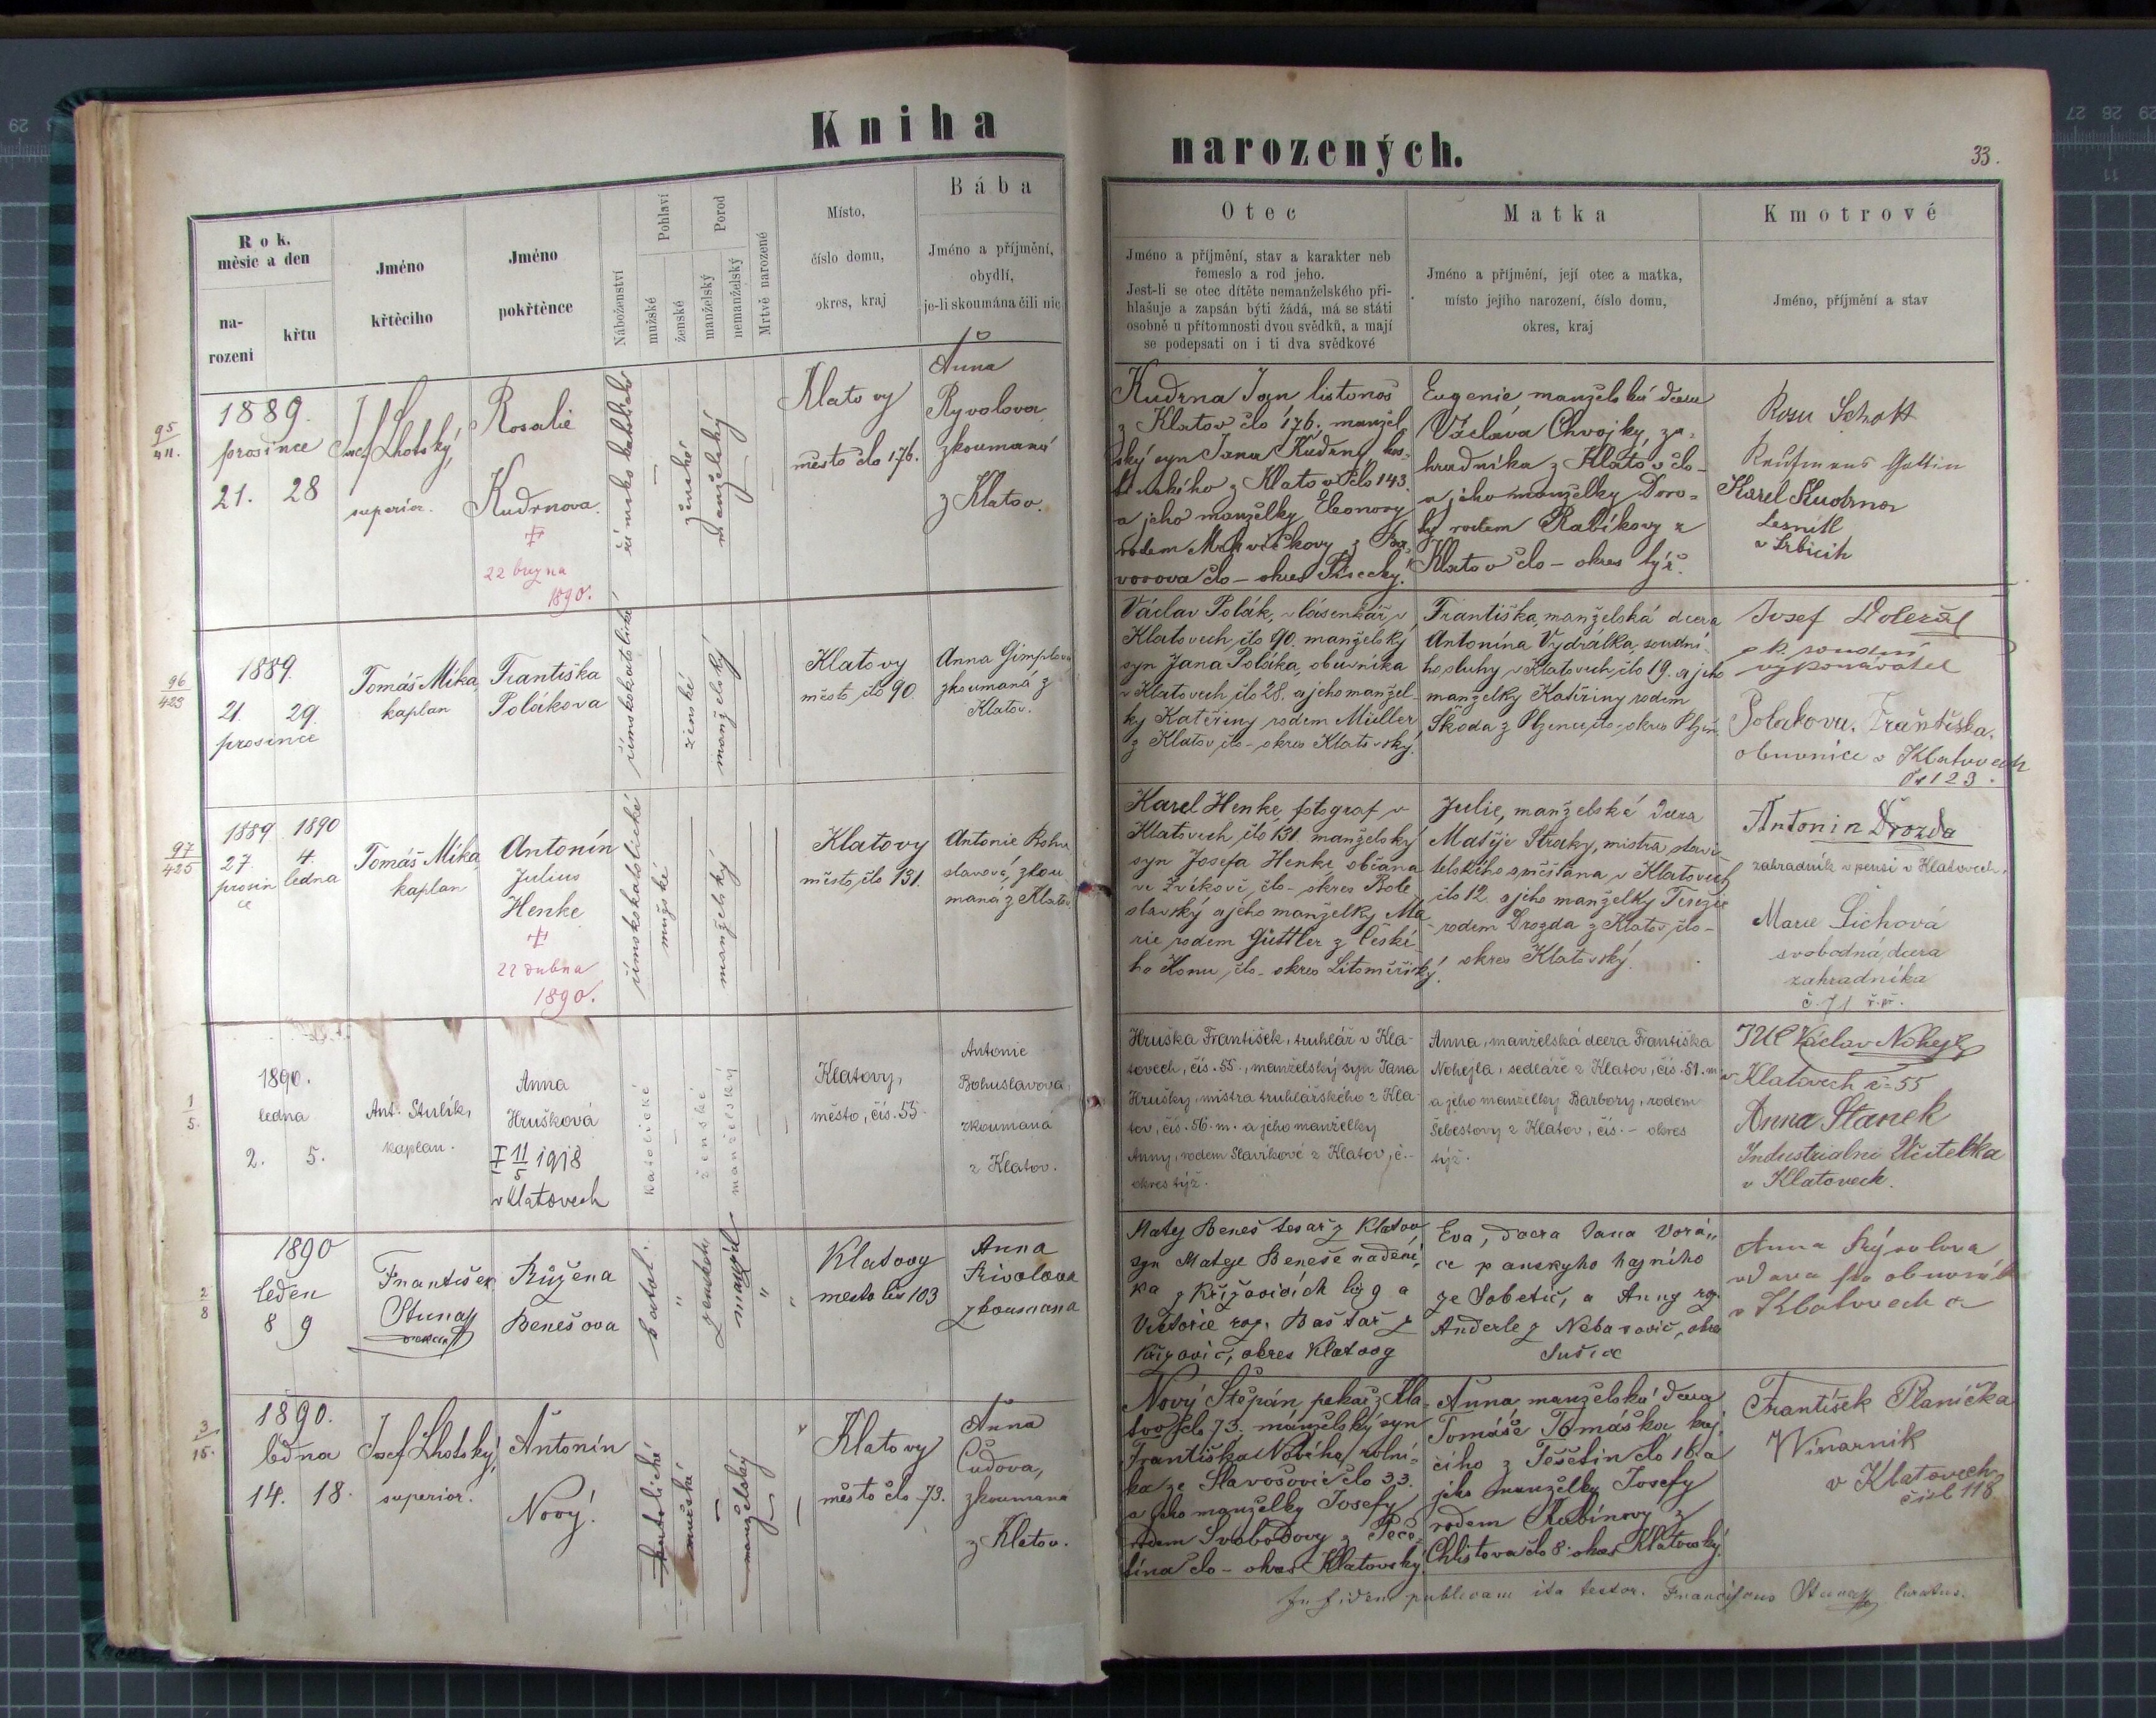 Kniha
narozených.
33.
Rok,
měsíc a den
na-
rození
křtu
Jméno
křtěcího
Jméno
pokřtěnce
Náboženství
Pohlaví
mužské
ženské
Porod
manželský
nemanželský
Mrtvě narozené
Místo,
číslo domu,
okres, kraj
Bába
Jméno a příjmění,
obydlí,
je-li skoumána čili nic
Otec
Jméno a příjmění, stav a karakter neb
řemeslo a rod jeho.
Jest-li se otec dítěte nemanželského při-
hlašuje a zapsán býti žádá, má se státi
osobně u přítomnosti dvou svědků, a mají
se podepsati on i ti dva svědkové
Matka
Jméno a příjmění, její otec a matka,
místo jejího narození, číslo domu,
okres, kraj
Kmotrové
Jméno, příjmění a stav
95
411.
1889.
prosince
21. 28
Josef Lhotský,
superior.
Rosalie
Kudrnova.
22 března
1890.
římsko katolické
ženské
manželský
Klatovy
město člo 176.
Anna
Ryvolova
zkoumaná
z Klatov.
Kudrna Jan listonoš
z Klatov člo 176. manžel
ský syn Jana Kudrny kos-
z Klatov člo 143.
a jeho manželky Eleonory
rodem z Ba-
vorova člo - okres Písecký.
Eugenie manželská dcera
Václava Chvojky, za-
hradníka z Klatov čl-
a jeho manželky Doro-
ty rodem Rabíkovy z
Klatov člo - okres týž.
Rosa Schott
Kaufmans Gattin
Karel Kudrna
Lesník
v Srbicih
96
423
1889.
21. 29.
prosince
Tomáš Mika,
kaplan
Františka
Polákova
římskokatolické
ženské
manželský
Klatovy
město, člo 90.
Anna Gimplova
zkoumaná z
Klatov.
Václav Polák, v
Klatovech, člo 90. manželský
syn Jana Poláka, obuvníka
v Klatovech člo 28. a jeho manžel-
ky Kateřiny rodem Müller
z Klatov, člo - okres Klatovský.
Františka, manželská dcera
Antonína Vydrálka, soudní-
ho sluhy v Klatovech, člo 19. a jeho
manželky Kateřiny rodem
Škoda z Plzence, člo - okres Plzeň.
Josef Doležal
c. k. soudní
vykonavatel
Polakova. Františka.
obuvnice v Klatovech
123.
97
425
1889 1890
27. 4.
prosin ledna
ce
Tomáš Mika,
kaplan
Antonín
Julius
Henke
22 dubna
1890.
římskokatolické
mužské
manželský
Klatovy
město, člo 131.
Antonie Bohu
slavová, zkou
maná z Klatov
Karel Henke, fotograf v
Klatovech, člo 131. manželský
syn Josefa Henke, občana
ve Zvíkově, člo - okres Bole
slavský a jeho manželky Ma
rie rodem Güttler z České-
ho Konu, člo - okres Litoměřický.
Julie, manželská dcera
Matěje Straky, mistra stavi-
telského a měšťana v Klatovech
člo 12. a jeho manželky Terezie
rodem Drozda z Klatov, člo -
okres Klatovský.
Antonin Drozda
zahradník v pensi v Klatovech,
Marie Lichová
svobodná dcera
zahradníka
č. 71 ř. př.
1
5.
1890.
ledna
2. 5.
Ant. Stulík,
kaplan.
Anna
Hrušková
11
5 1918
v Klatovech
katolické
ženské
manželský
Klatovy,
město, čís. 55.
Antonie
Bohuslavová,
zkoumaná
z Klatov.
Hruška František, truhlář v Kla-
tovech, čís. 55., manželský syn Jana
Hrušky, mistra truhlářského z Kla-
tov, čís. 56. m. a jeho manželky
Anny, rodem Slavíkové z Klatov, č.-
okres týž.
Anna, manželská dcera Františka
Nohejla, sedláře z Klatov, čís. 51. m.
a jeho manželky Barbory, rodem
Šebestovy z Klatov, čís. - okres
týž.
JUC Václav Nohejl
v Klatovech č. 55
Anna Stanek
Industrialní Učitelka
v Klatovech.
2
8
1890
leden
8 9
František
Stuna
Růžena
Benešova
katol.
ženskeh
manžel
Klatovy
město čis 103
Anna
Rivolova
zkoumana
Matej Beneš tesař z Klatov
syn Mateje Beneše nadení-
ka z Křižovicích čis 9 a
Viktorie roz. Baštař z
Křižovic, okres Klatovy
Eva, dcera Jana Vorá-
ce panskyho hajního
ze Sobetic, a Anny roz.
Anderle z Nebavovic, okres
Sušice
Anna Rývolova
vdova po obuvník
v Klatovech
3
15.
1890.
ledna
14. 18.
Josef Lhotský,
superior.
Antonín
Nový.
katolické
mužské
manželský
Klatovy
město člo 73.
Anna
Čudova,
zkoumaná
z Klatov.
Nový Štěpán, pekař z Kla-
tov člo 73. manželský syn
Františka Nového, rolní-
ka ze Slavošovic člo 33.
a jeho manželky Josefy
rodem Svobodovy z Peče-
tína člo - okres Klatovský.
Anna, manželská dcera
Tomáše Tomáška, krej
čího z Těšetin člo 16. a
jeho manželky Josefy
rodem Rubínovy z
Chlistova člo 8. okres Klatovský.
František Planička
Winarnik
v Klatovech
čisl 118
In fidem publicam ita testor. Franciscus Stuna curatus.